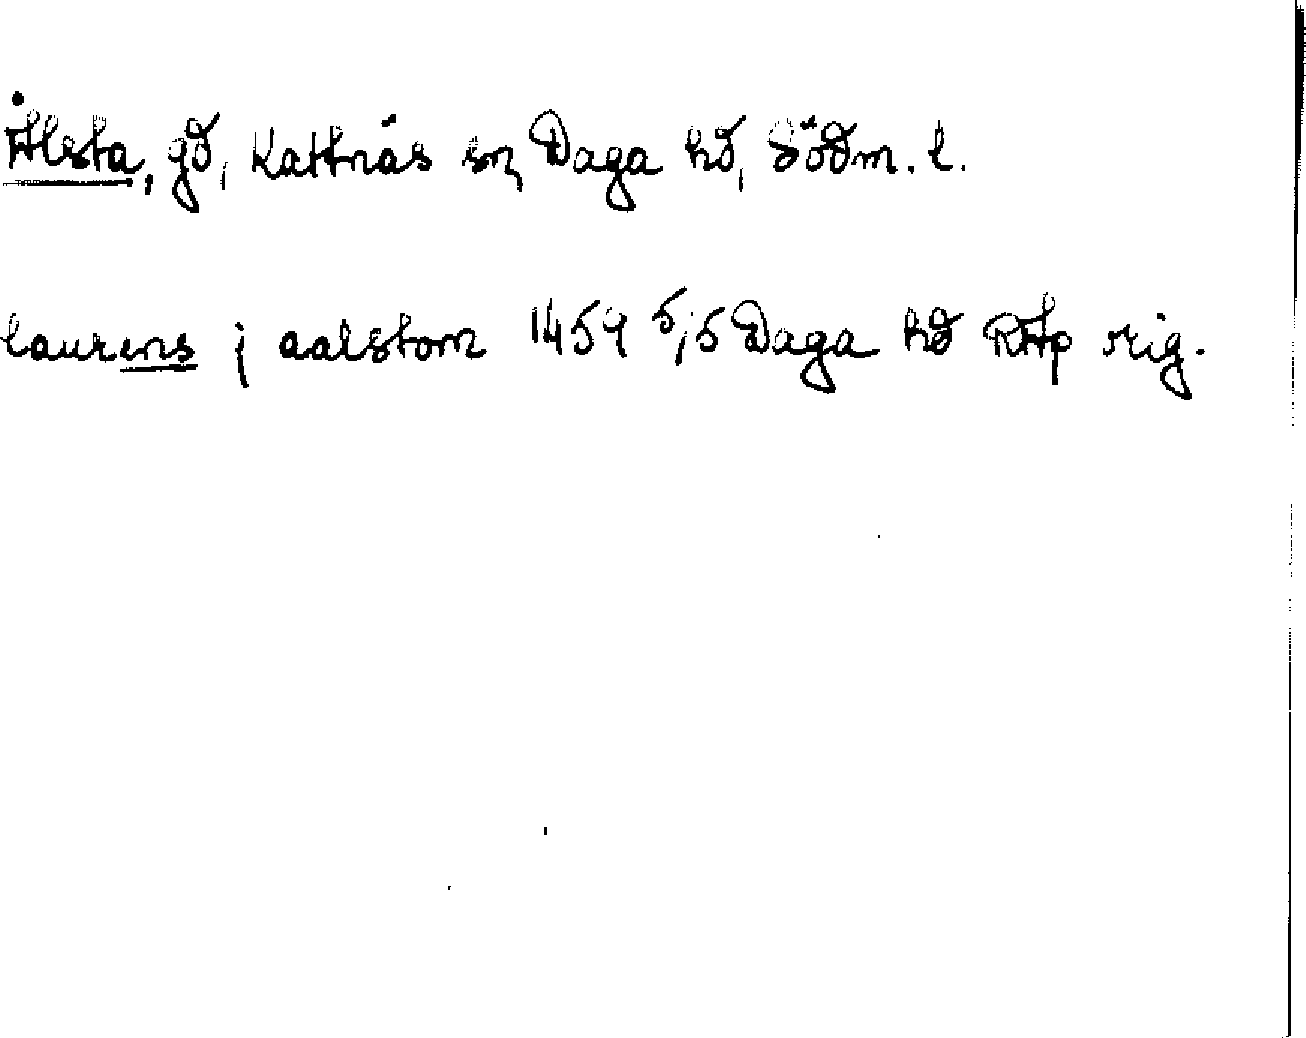 Ålsta, gd, Kattnäs sn, Daga hd, Södm. l.
laurens j aalstom 1459 5/5 Daga hd RAp orig.